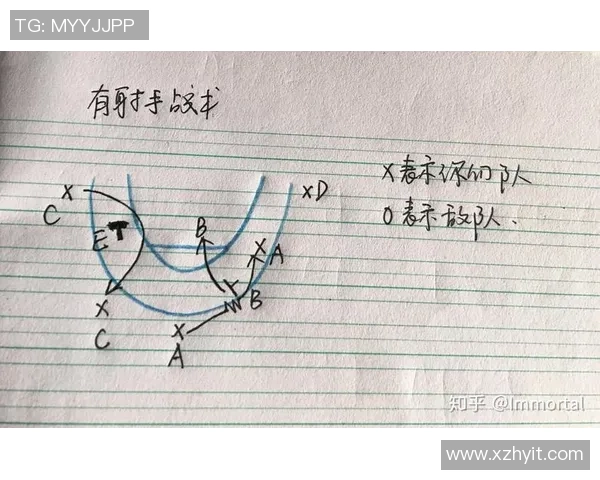 TG: MYYJJPP
有射手战术
X表示你们队
O表示敌队.
X
C
E
B
X A
X D
B
X
C
X
A
知乎 @Immortal
www.xzhyit.com